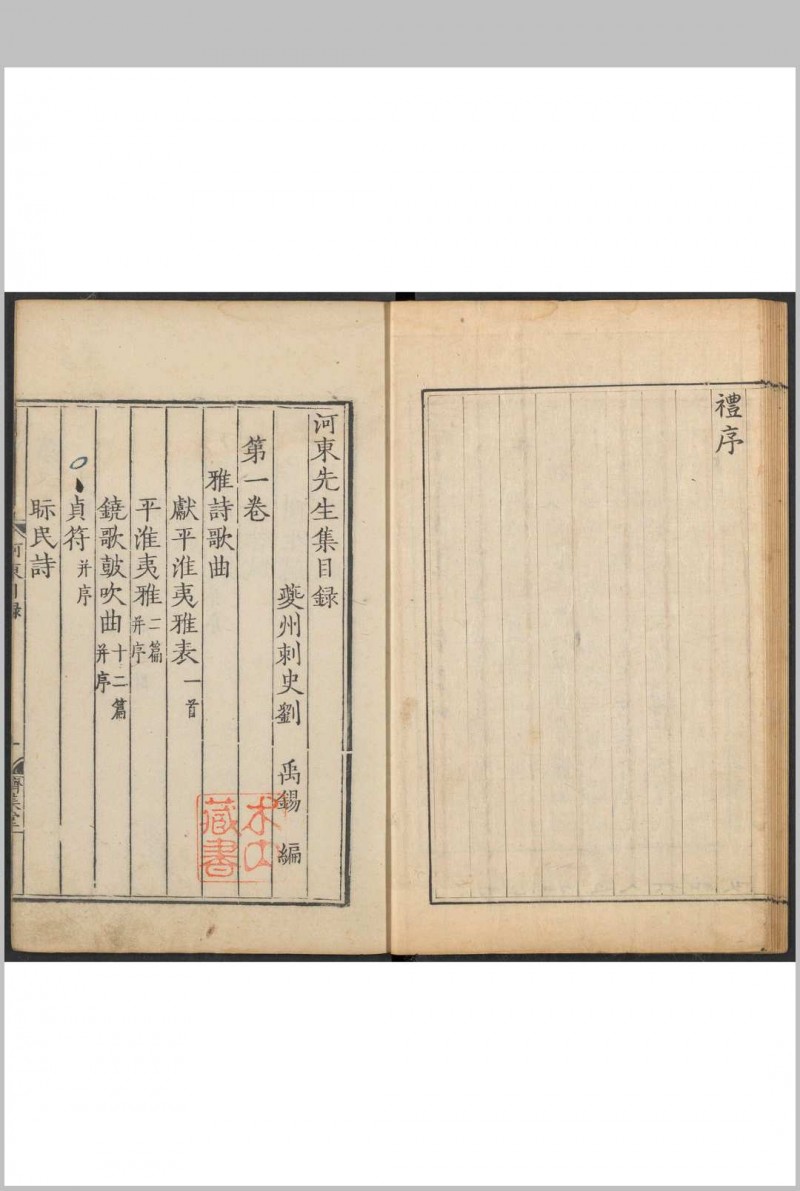 禮序
河東先生集目録
夔州刺史劉 禹錫 編
第一卷
雅詩歌曲
獻平淮夷雅表一首
平淮夷雅二篇并序
鐃歌鼓吹曲十二篇并序
貞符并序
眎民詩
河東目録
藏書